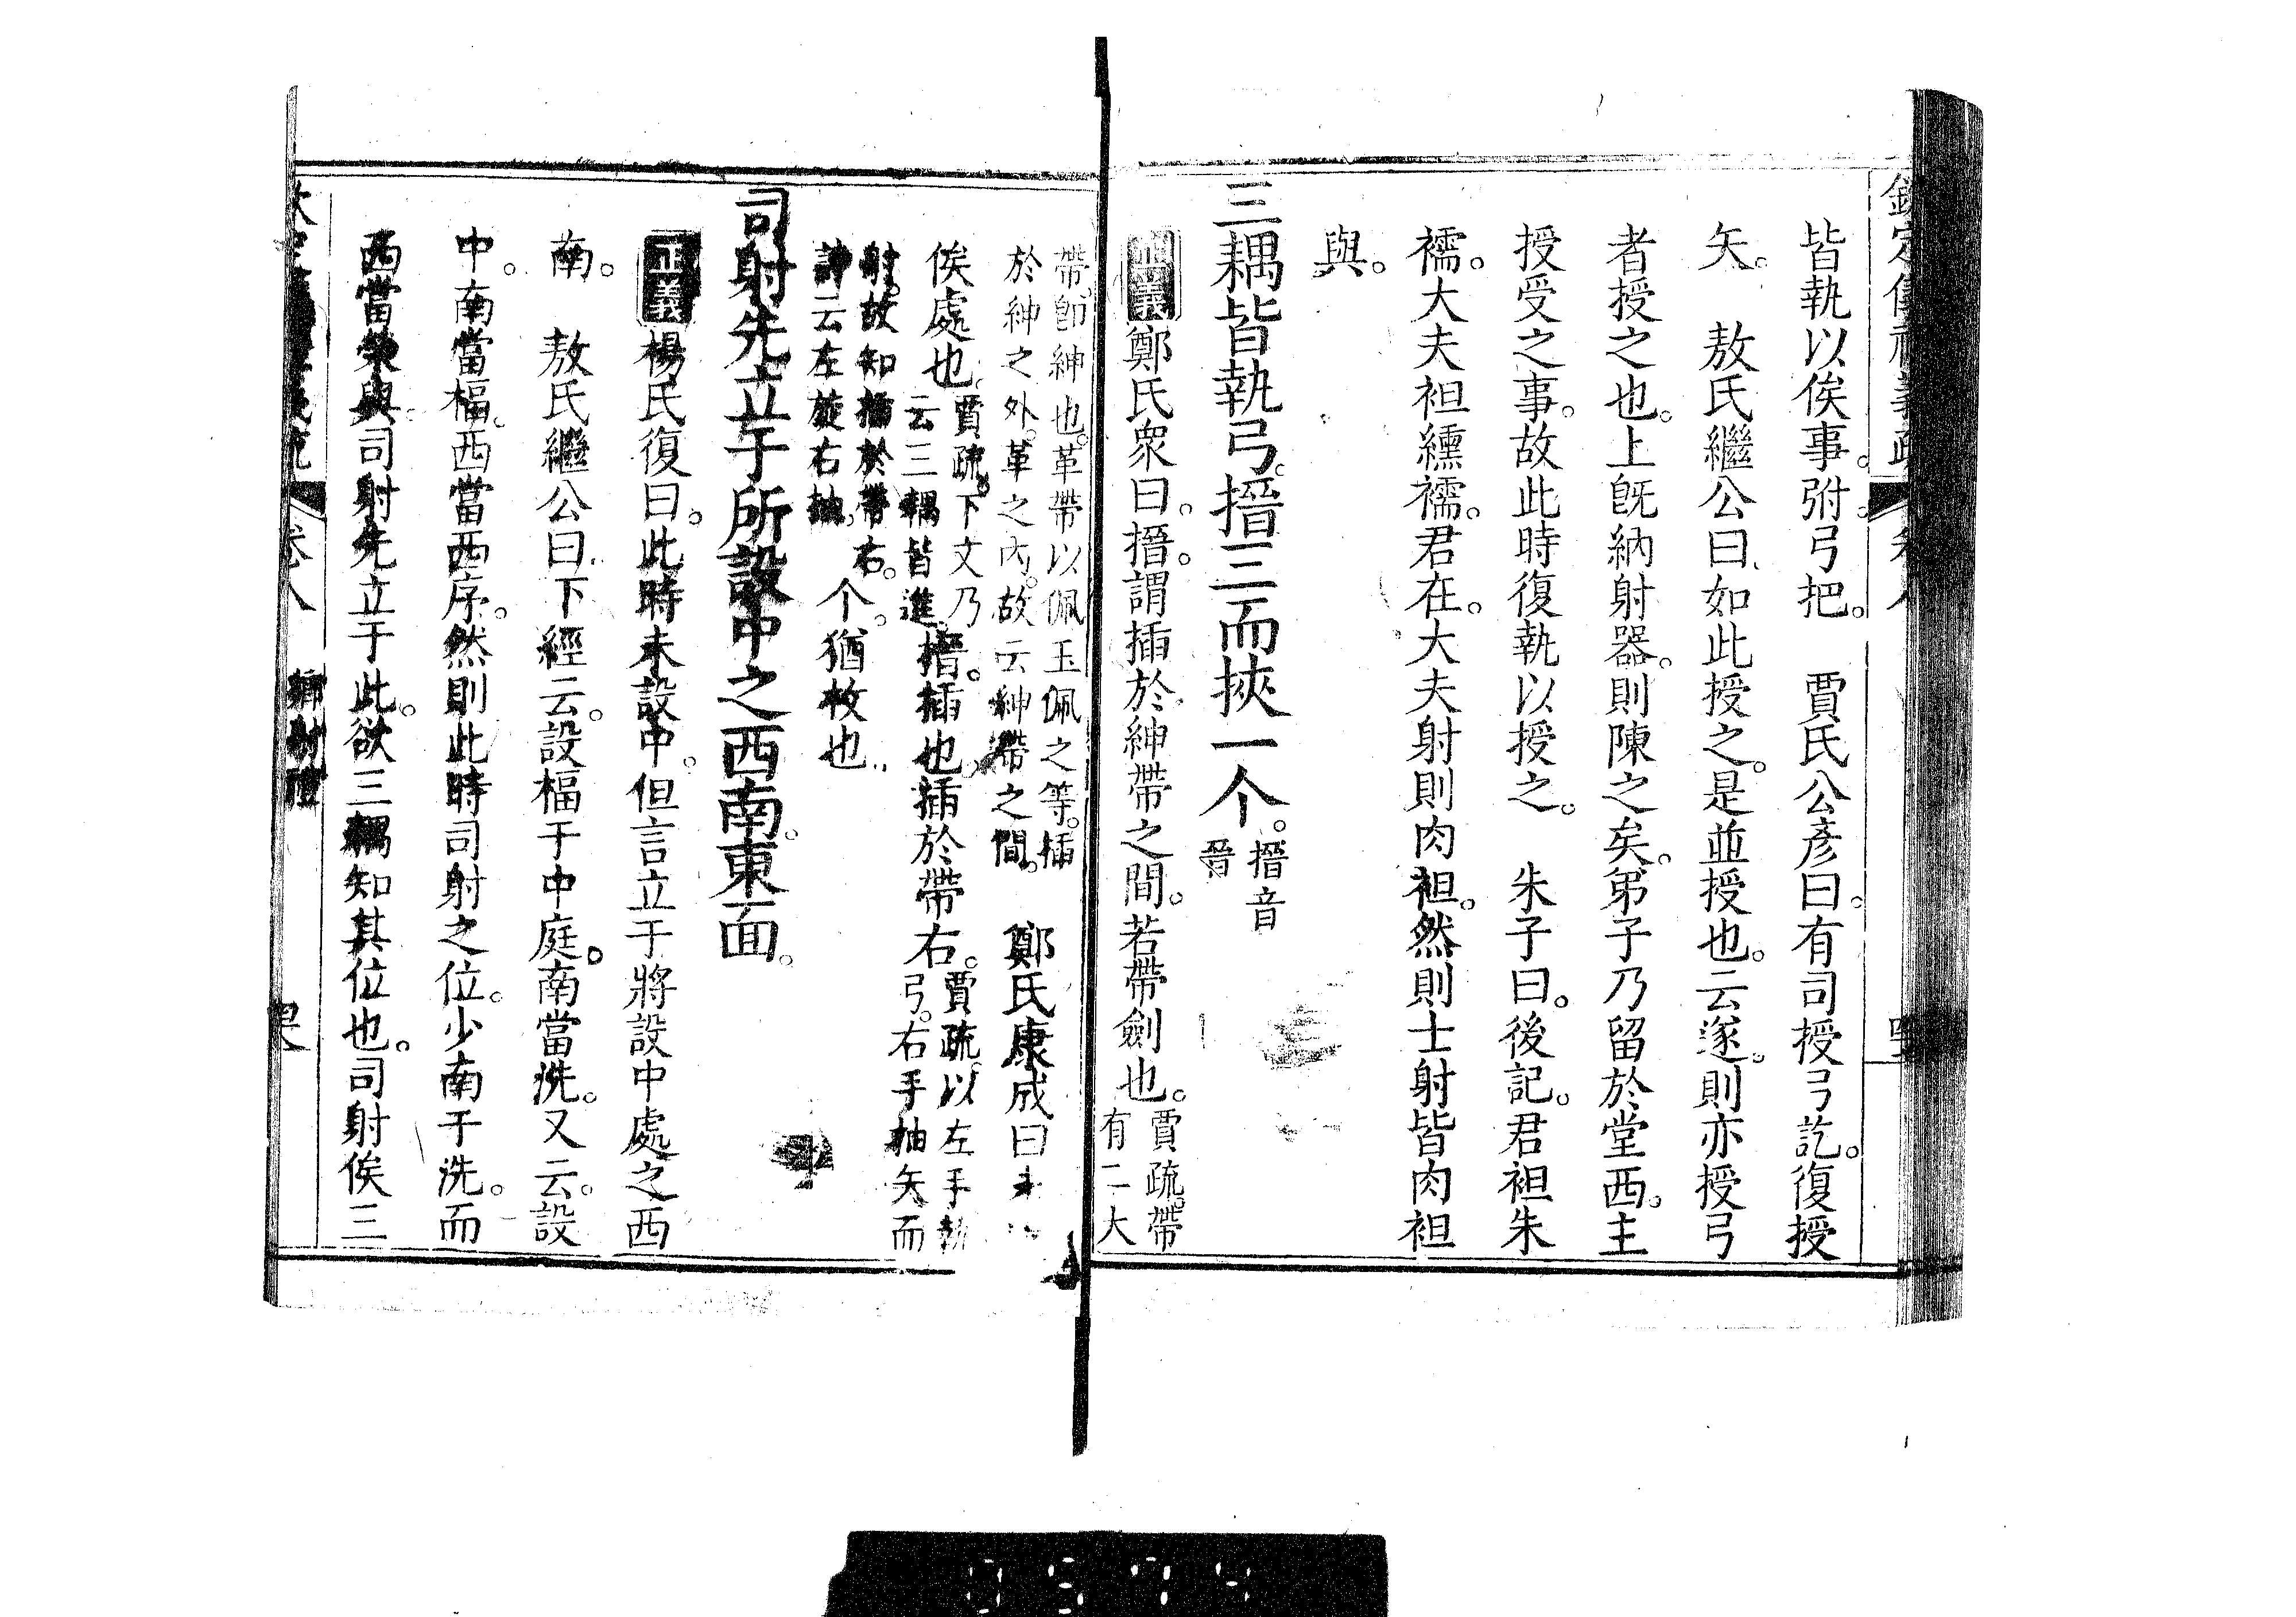 皆執以俟事。弣。弓把。　賈氏公彥曰。有司授弓訖。復授
矢。　敖氏繼公曰。如此授之。是並授也。云遂。則亦授弓
者授之也。上旣納射器。則陳之矣。第子乃留於堂西。主
授受之事。故此時復執以授之。　朱子曰。後記。君袒朱
襦。大夫袒纁襦。君在。大夫射則肉袒。然則士射皆肉袒
與。
三耦皆執弓。搢三而挾一个。搢音
晉
正義鄭氏衆曰。搢。謂插於紳帶之間。若帶劍也。賈疏。帶
有二大
帶。卽紳也。革帶以佩玉佩之等。插
於紳之外。革之內。故云紳帶之間。　鄭氏康成曰
俟處也。賈疏。下文乃
云三耦皆進。搢。插也。插於帶右。賈疏。以左手執
弓。右手抽矢而
射。故知插於帶右。
詩云左旋右抽。个。猶枚也
司射先立于所設中之西南。東面。
正義楊氏復曰。此時未設中。但言立于將設中處之西
南。　敖氏繼公曰。下經云。設楅于中庭。南當洗。又云。設
中。南當楅。西當西序。然則此時司射之位。少南于洗。而
西當榮與。司射先立于此。欲三耦知其位也。司射俟三
卷八　鄉射禮